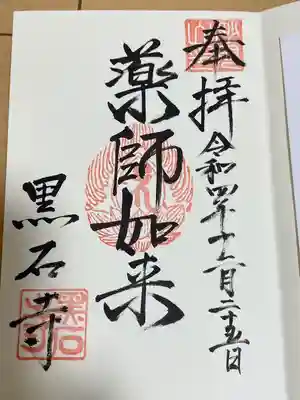 奉拝 令和四年十一月二十五日
薬師如来
黒石寺